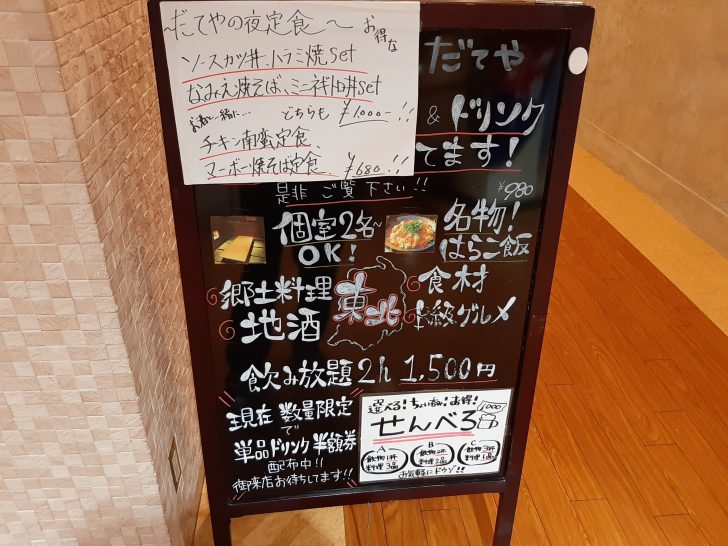 〜だてやの夜定食〜
お得な
ソースカツ丼、トラミ焼set
なみえ焼そば、ミニ丼set
お酒と一緒に…
どちらも ¥1000-!!
チキン南蛮定食、
マーボー焼そば定食、 ¥680!!
だてや
& ドリンク
てます!
是非 ご覧 下さい!!
個室2名~
OK!
¥980
名物!
はらこ飯
郷土料理
地酒
東北
食材
B級グルメ
飲み放題2h 1,500円
現在 数量限定
で
単品ドリンク半額券
配布中!!
御来店お待ちしてます!!
選べる!ちょい呑み!お得!
せんべろ
1000
A
飲物1杯
料理3品
B
飲物2杯
料理2品
C
飲物3杯
料理1品
お気軽にドウゾ!!